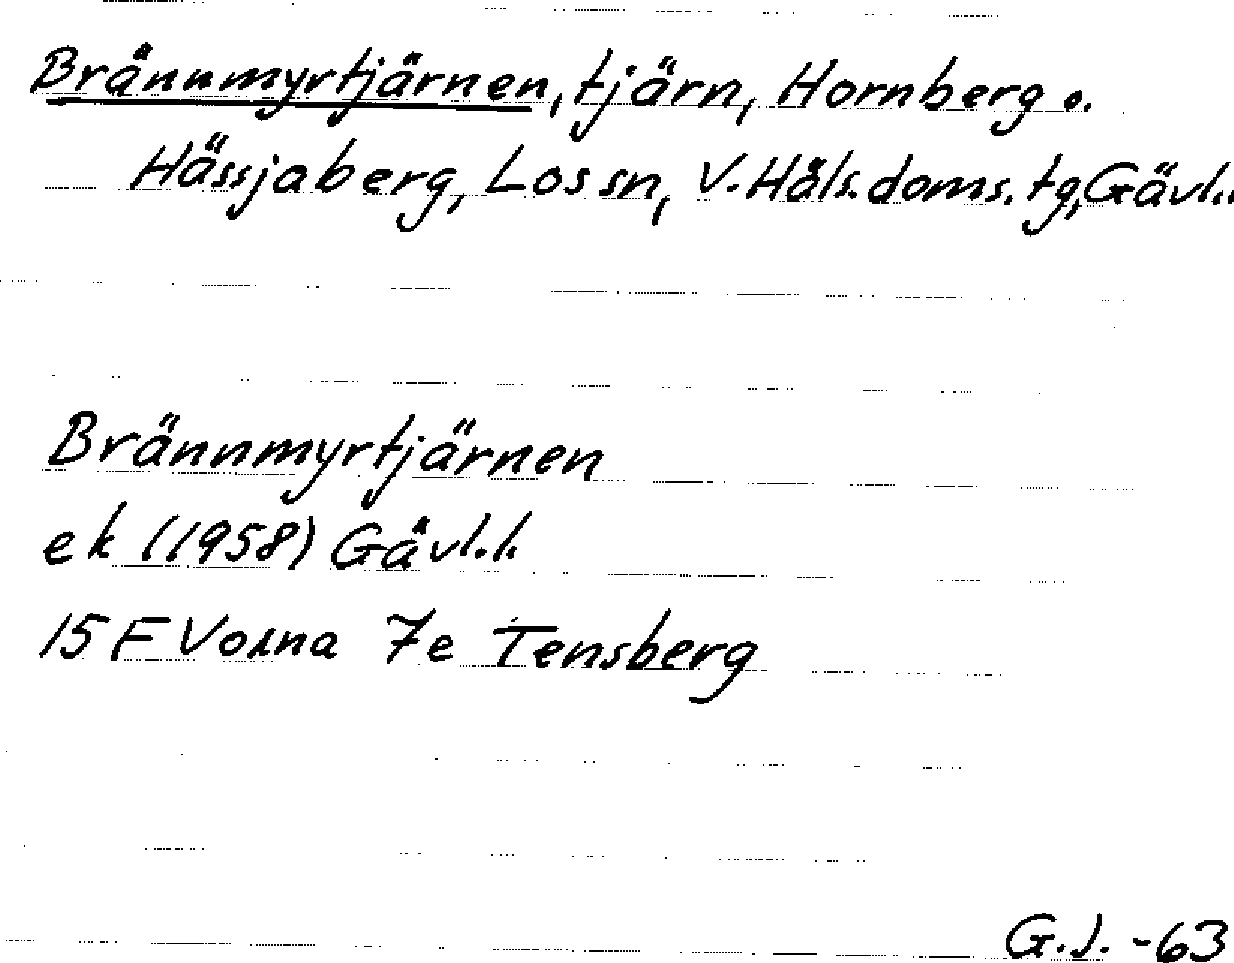 Brännmyrtjärnen, tjärn, Hornberg o.
Hässjaberg, Los sn, V. Häls. doms. tg, Gävl. l.
Brännmyrtjärnen
ek (1958) Gävl. l.
15 F Voxna 7e Tensberg
G.J. -63